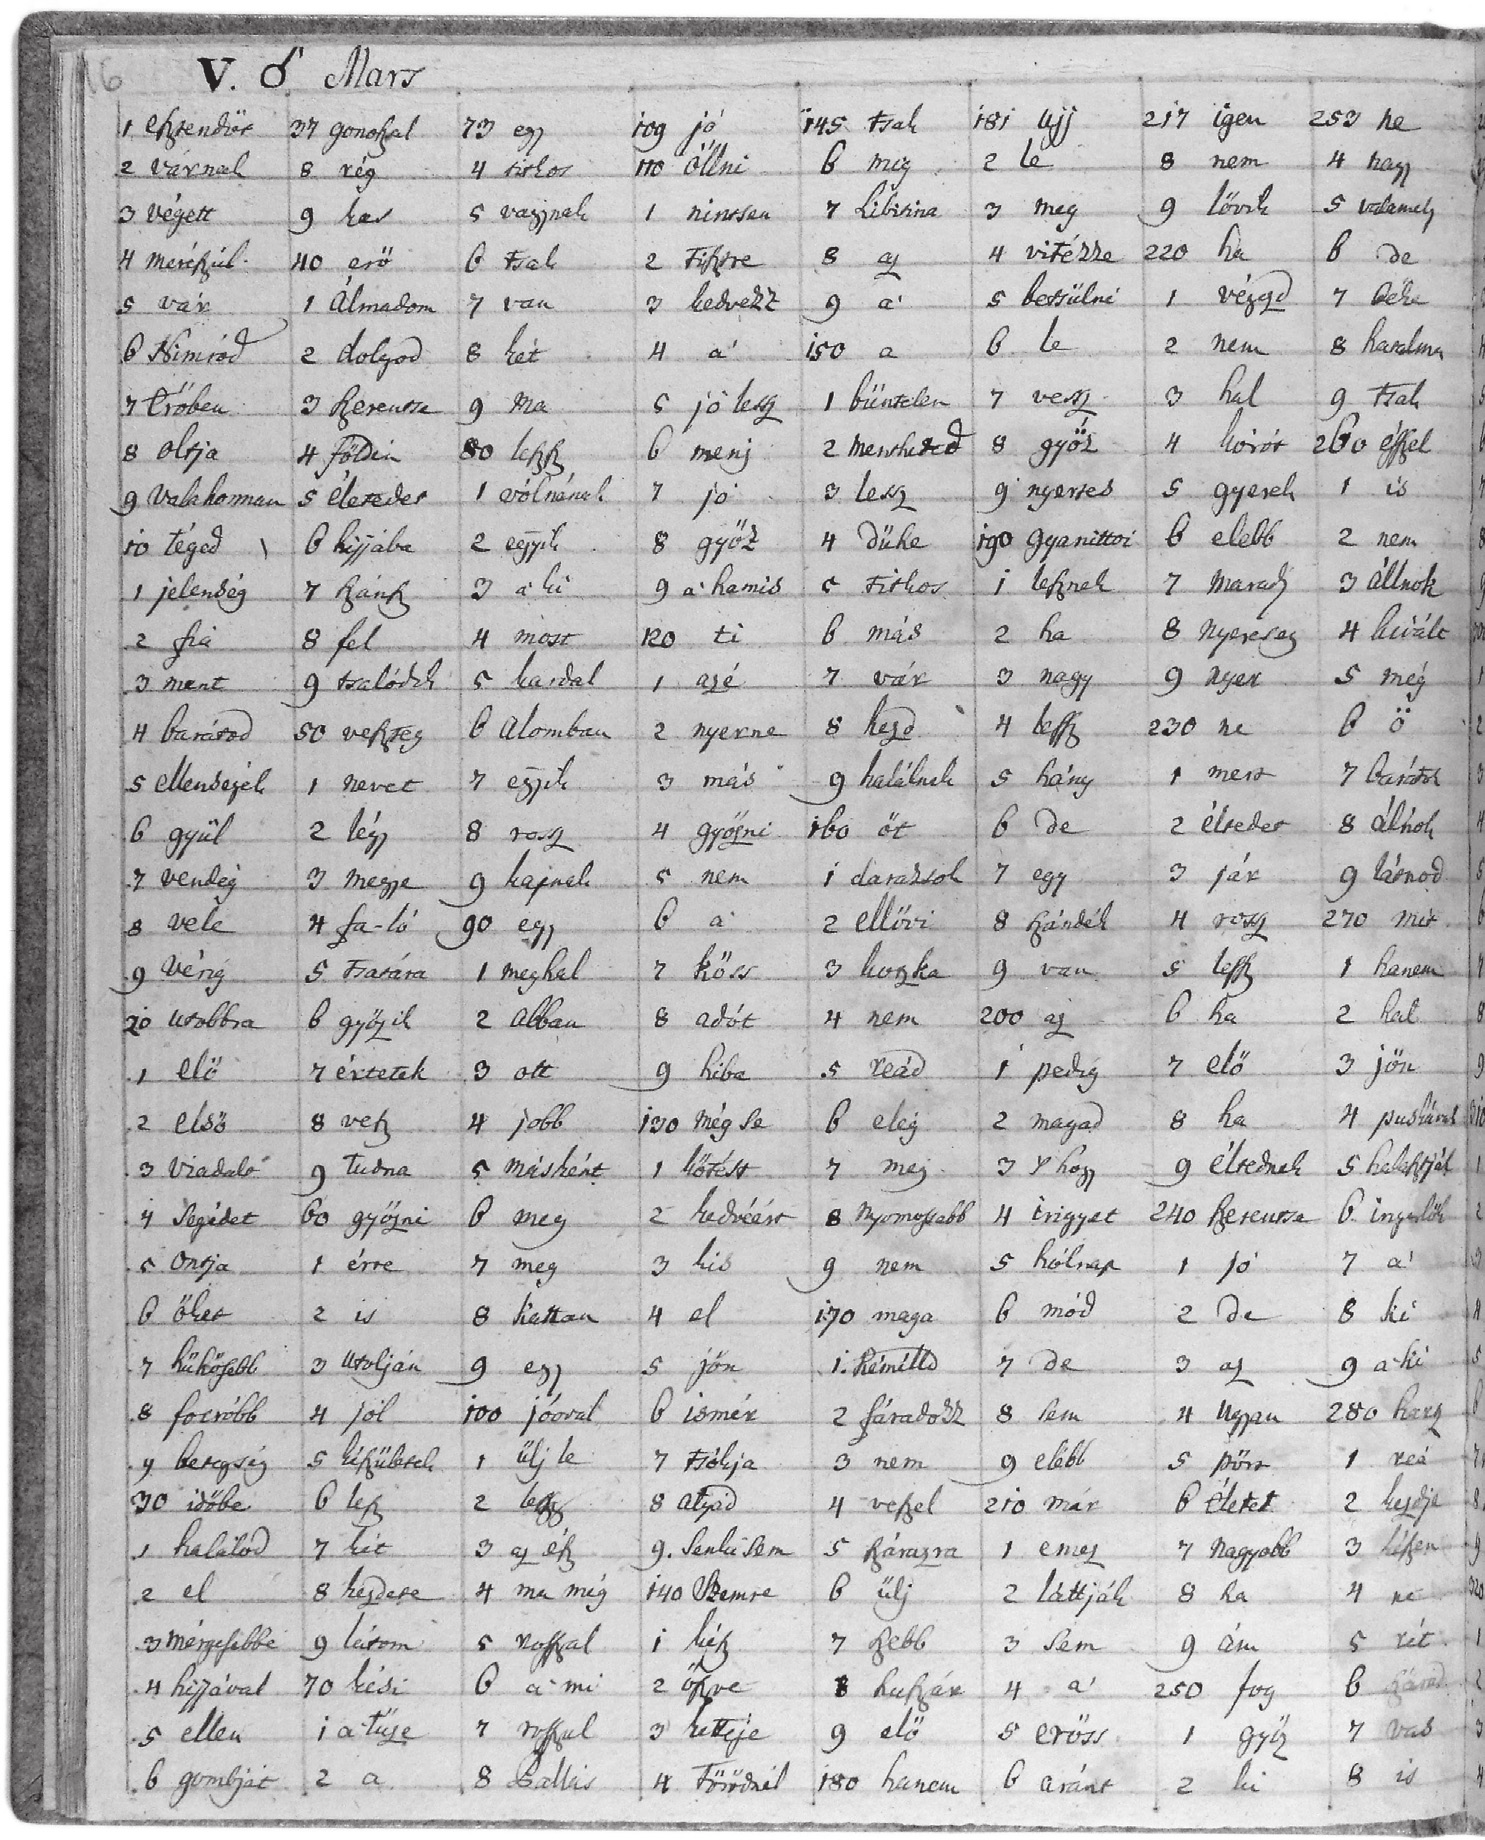 16 V. ♂ Mars
1 37 gonoſzal 73 egy 109 jó 145 tsak 181 Ujj 217 igen 253 ne
2 várnak 8 rég 4 titkos 110 állni 6 míg 2 le 8 nem 4 nagy
3 végett 9 has 5 vagynak 1 nintsen 7 Libitina 3 meg 9 lövik 5 valamely
4 40 erö 6 tsak 2 8 az 4 vitézze 220 ha 6 de
5 vár 1 Álmadom 7 van 3 kedvezz 9 a' 5 betsülni 1 végezd 7 béke
6 Nimród 2 dolgod 8 két 4 a' 150 a 6 le 2 nem 8 hatalma
7 Eröben 3 Szerentse 9 Ma 5 jó lesz 1 büntelen 7 vesz 3 hal 9 tsak
8 oltja 4 földin 80 leſsz 6 menj 2 8 győz 4 260 éſzel
9 valahonnan 5 életedet 1 vólnának 7 jó 3 lesz 9 nyertes 5 gyerek 1 is
10 téged 6 hijjába 2 egyik 8 győz 4 dühe 190 6 elebb 2 nem
1 jelenség 7 szánſz 3 a' ki 9 a' hamis 5 titkos 1 leſznek 7 maradj 3 állnok
2 fia 8 fel 4 most 120 ti 6 más 2 ha 8 nyereség 4 kivált
3 ment 9 tsalódik 5 kardal 1 azé 7 vár 3 nagy 9 nyer 5 még
4 barátod 50 veſzteg 6 álomban 2 nyerne 8 kezd 4 leſsz 230 ne 6 ö
5 ellenségek 1 nevet 7 egyik 3 más 9 halálnak 5 hány 1 mert 7 barátok
6 gyül 2 légy 8 rosz 4 győzni 160 öt 6 de 2 életedet 8 álnok
7 vendég 3 megye 9 kapnak 5 nem 1 darázsok 7 egy 3 jár 9 látnod
8 vele 4 fa-ló 90 egy 6 a' 2 ellövi 8 szándék 4 rosz 270 mit
9 vérig 5 tsatára 1 meghal 7 köss 3 kotzka 9 van 5 leſsz 1 hanem
20 utobbra 6 győzik 2 abban 8 adót 4 nem 200 az 6 ha 2 hal
1 elö 7 értetek 3 ott 9 hiba 5 reád 1 pedig 7 elö 3 jön
2 elsö 8 veſz 4 jobb 130 még se 6 elég 2 magad 8 ha 4
3 viadalo 9 tudna 5 másként 1 kötést 7 meg 3 's hogy 9 élednek 5
4 segédet 60 győzni 6 meg 2 kedvéért 8 nyomoſsabb 4 irigyet 240 Szerentse 6
5 ontja 1 érte 7 meg 3 kis 9 nem 5 hólnap 1 jó 7 a'
6 öket 2 is 8 kattan 4 el 170 maga 6 mód 2 de 8 ki
7 3 utolján 9 egy 5 jön 1 kéméld 7 de 3 az 9 a' ki
8 4 jól 100 jóval 6 ismér 2 fáradozz 8 sem 4 ugyan 280 harz
9 betegség 5 1 ülj le 7 tsókja 3 nem 9 elébb 5 pört 1 reá
30 idöbe 6 leſz 2 leſsz 8 atyád 4 veſzel 210 már 6 életet 2 kezdje
1 halálod 7 két 3 az éſz 9 senki sem 5 szárazra 1 emez 7 nagyobb 3 kéſzen
2 el 8 kezdete 4 ma még 140 Szemre 6 ülj 2 láttják 8 ha 4 ne
3 mérgesebbé 9 látom 5 roſszal 1 kéſz 7 szebb 3 sem 9 ám 5 rét
4 hijjával 70 kési 6 a' mi 2 öſzve 8 huſzár 4 a' 250 fog 6
5 ellen 1 a' tüze 7 roſszul 3 ketteje 9 elö 5 eröss 1 győz 7 vas
6 gombját 2 a 8 Pallás 4 Töröknél 180 hanem 6 aránt 2 ki 8 is